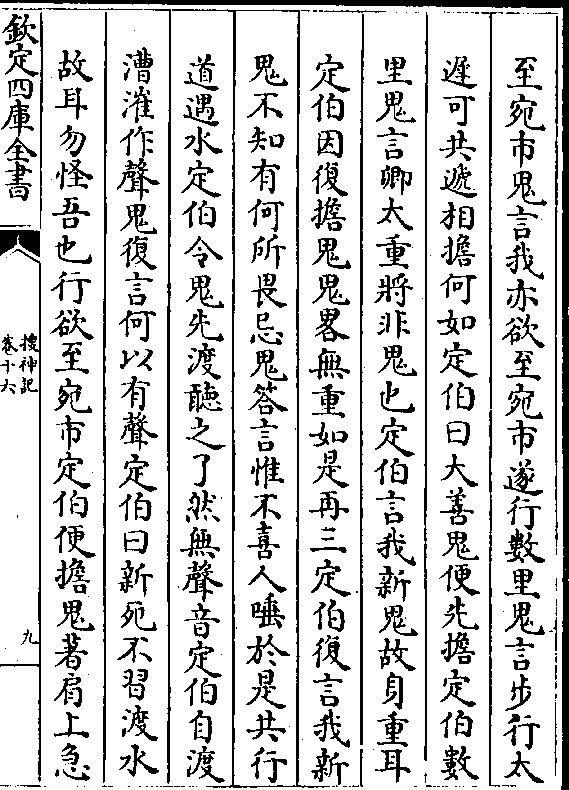 至宛市鬼言我亦欲至宛市遂行數里鬼言步行太
遲可共遞相擔何如定伯曰大善鬼便先擔定伯數
里鬼言卿太重將非鬼也定伯言我新鬼故身重耳
定伯因復擔鬼鬼畧無重如是再三定伯復言我新
鬼不知有何所畏忌鬼答言惟不喜人唾於是共行
道遇水定伯令鬼先渡聽之了然無聲音定伯自渡
漕漼作聲鬼復言何以有聲定伯曰新死不習渡水
故耳勿怪吾也行欲至宛市定伯便擔鬼著肩上急
欽定四庫全書
搜神記
卷十六
九